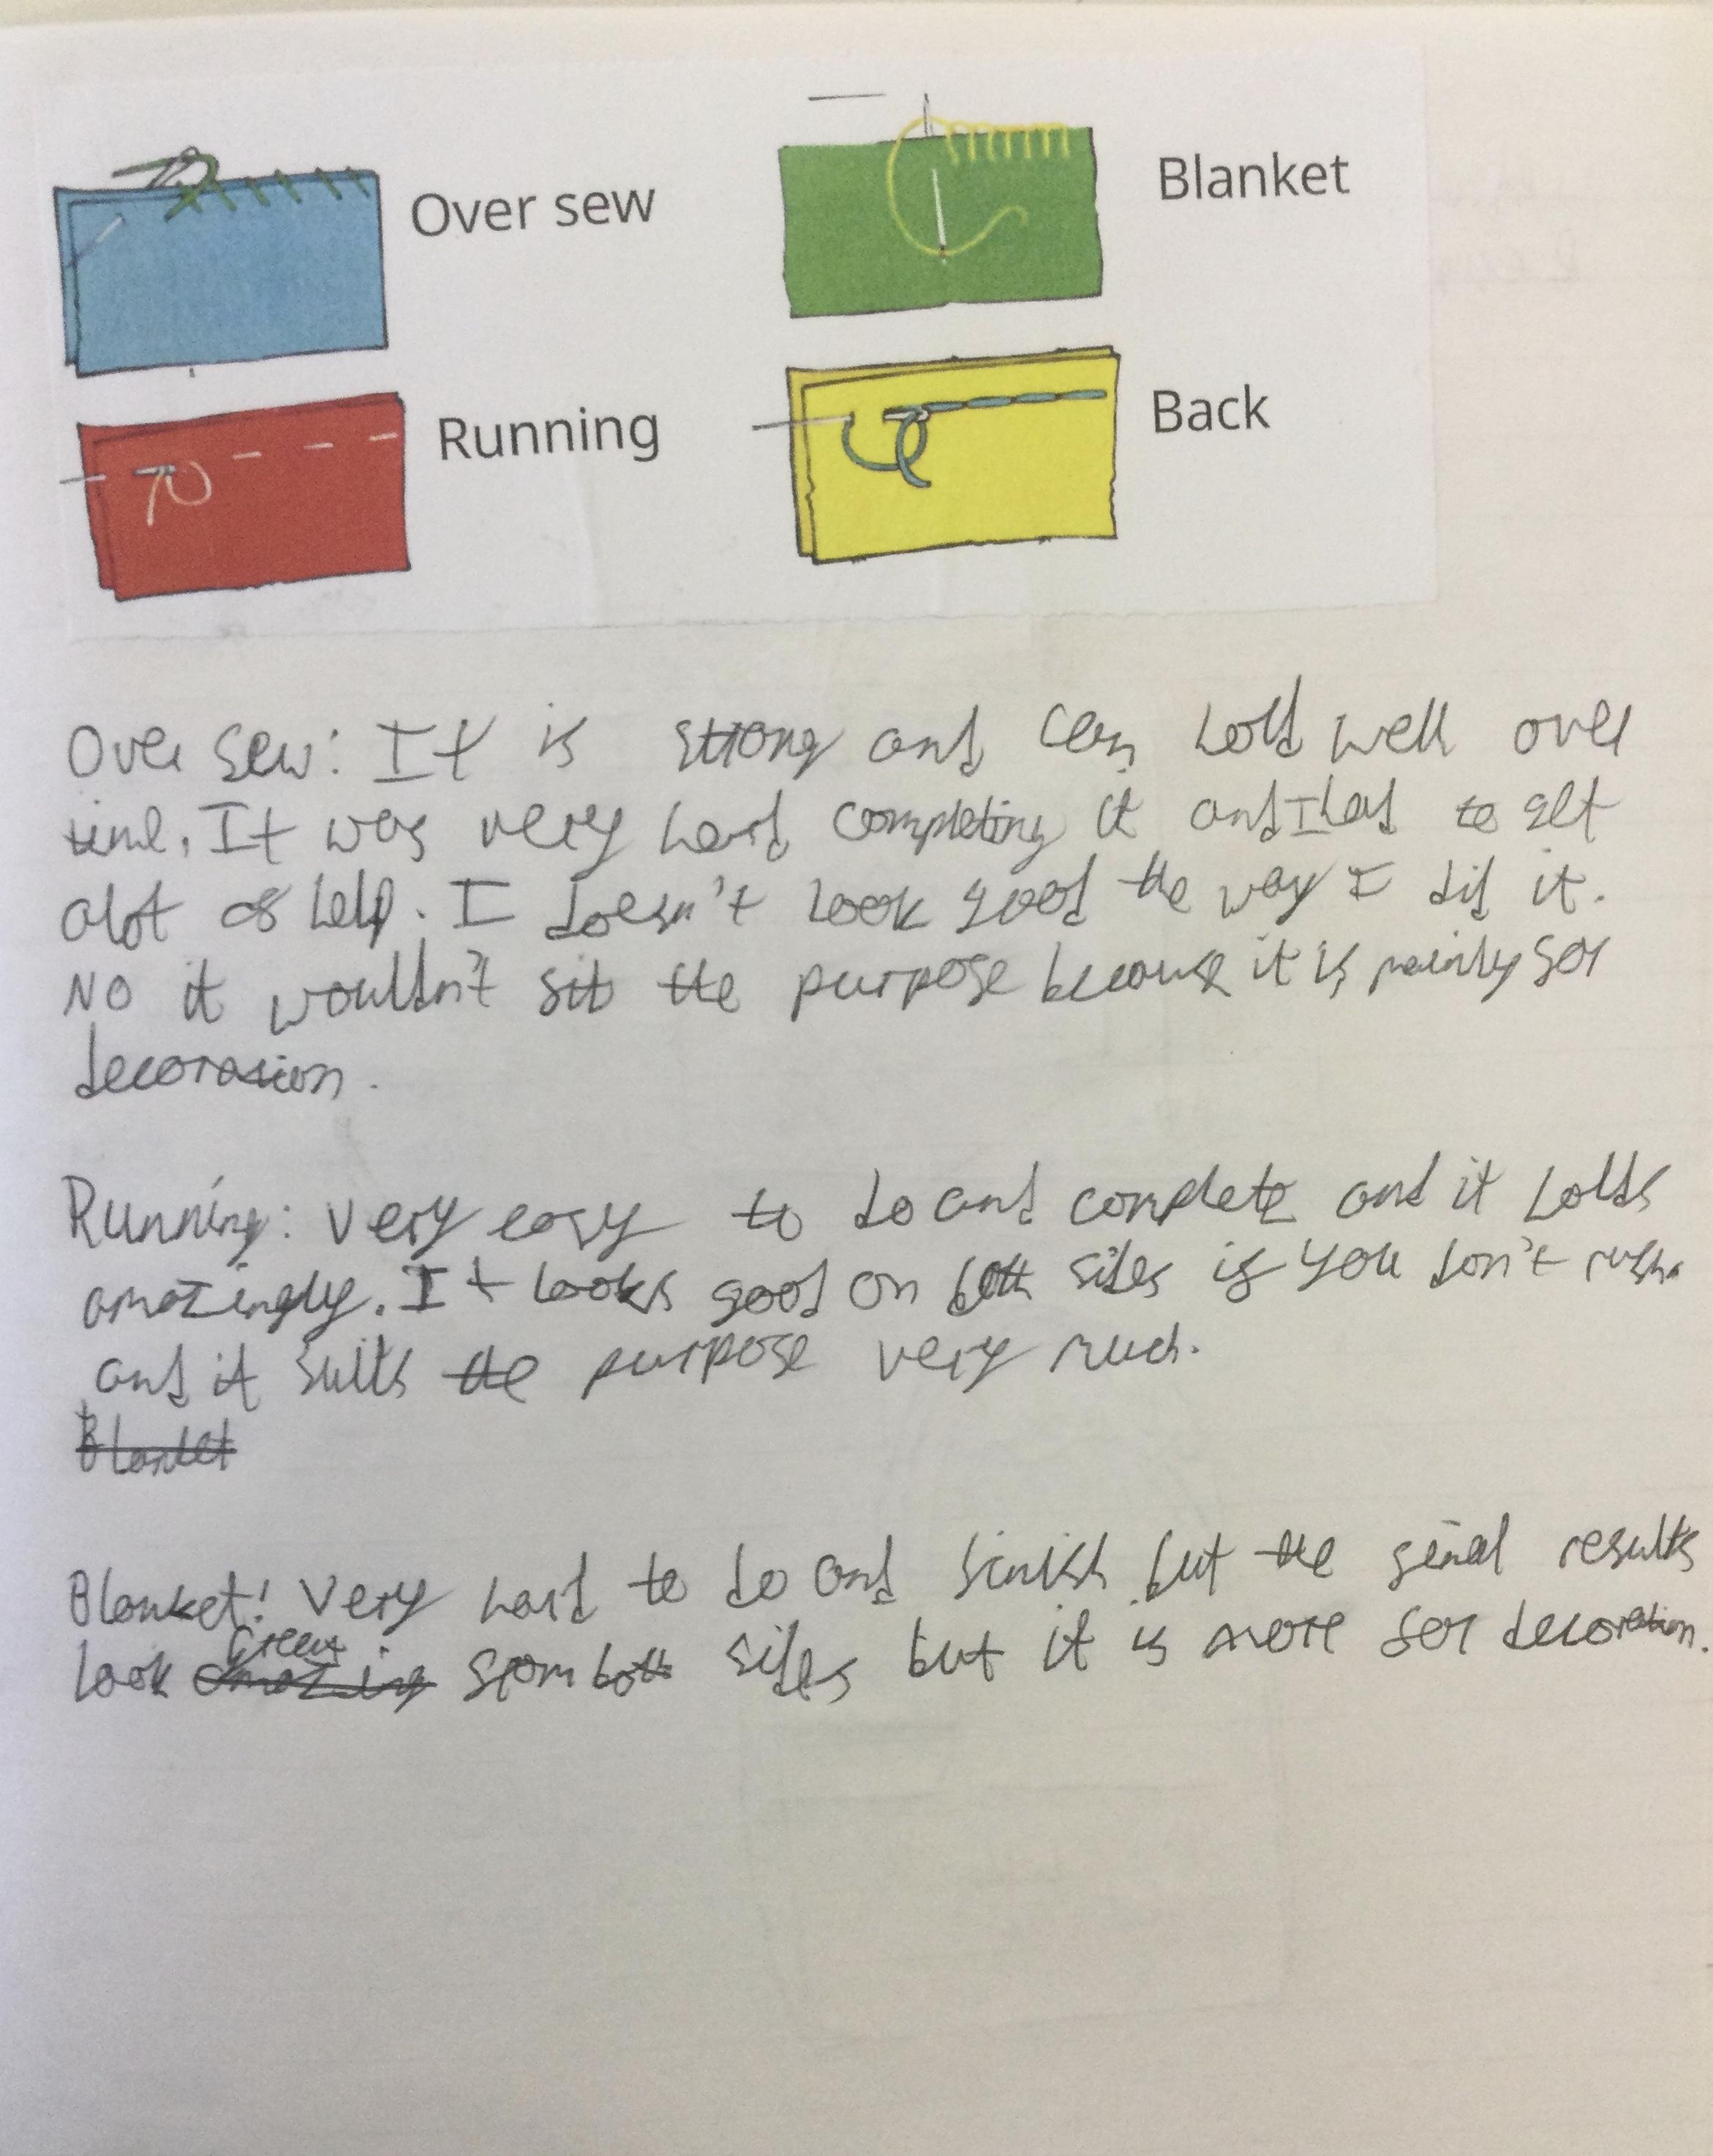 Over sew
Blanket
Running
Back
Over sew: It is strong and can hold well over
time. It was very hard completing it and I had to get
alot of help. I doesn't look good the way I did it.
No it wouldn't sit the purpose because it is mainly for
decoration.
Running: very easy to do and complete and it holds
amazingly. It looks good on both sides if you don't rush
and it suits the purpose very much.
Blanket
Blanket: Very hard to do and finish but the final results
look amazing Great from both sides but it is more for decoration.